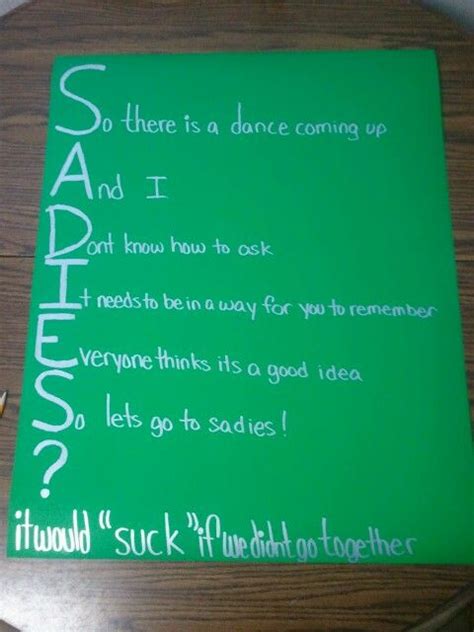 So there is a dance coming up
And I
Dont know how to ask
It needs to be in a way for you to remember
Everyone thinks its a good idea
So lets go to sadies!
?
it would "suck" if we didnt go together